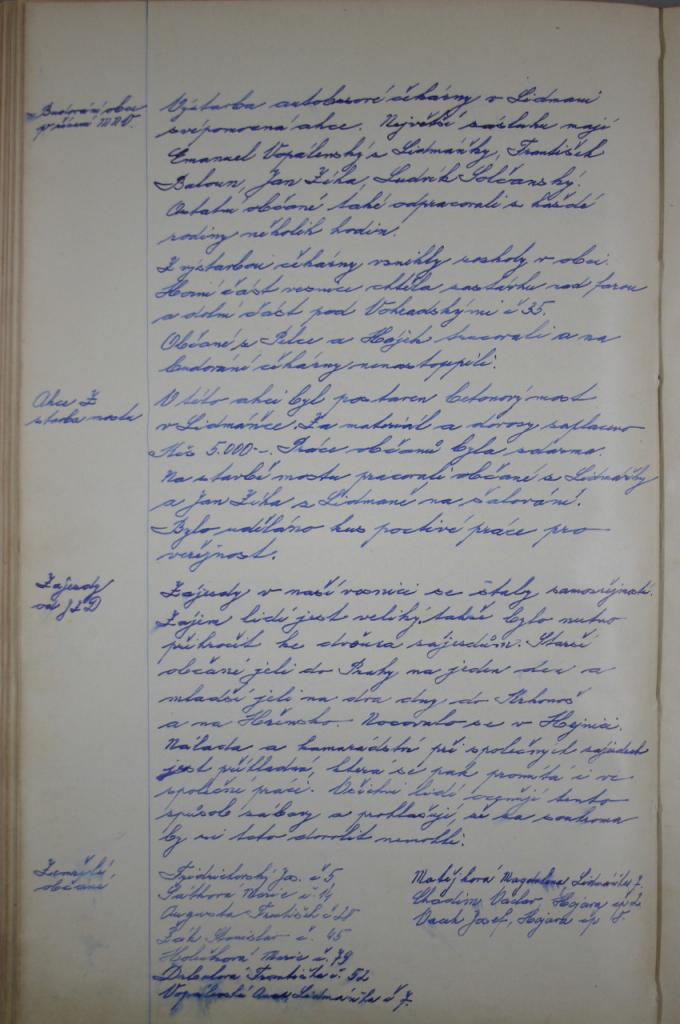 Budování obce
v řízení MNV.
Výstavba autobusové čekárny v Lidmani
svépomocná akce. Největší zásluhu mají
Emanuel Vopálenský z Lidmáňky, František
Baloun, Jan Žika, Ludvík Solčanský.
Ostatní občané také odpracovali z každé
rodiny několik hodin.
Z výstavbou čekárny vznikly rozkoly v obci.
Horní část vesnice chtěla zastávku nad farou
a dolní část pod Vohradskými č 35.
Občané z Pelce a Hájek trucovali a na
budování čekárny nenastoupili.
Akce Z
stavba mostu
V této akci byl postaven betonový most
v Lidmáňce. Za materiál a dovozy zaplaceno
Kčs 5.000-. Práce občanů byla zdarma.
Na stavbě mostu pracovali občané z Lidmáňky
a Jan Žika z Lidmaně na šalování.
Bylo uděláno kus poctivé práce pro
veřejnost.
Zájezdy
od JZD
Zájezdy v naší vesnici se staly samozřejmostí.
Zájem lidí jest veliký, takže bylo nutno
přikročit ke dvěma zájezdům. Starší
občané jeli do Prahy na jeden den a
mladší jeli na dva dny do Krkonoš
a na Hřensko. Nocovalo se v Hejnici.
Nálada a kamarádství při společných zájezdech
jest příkladná, která se pak promítá i ve
společné práci. Všichni lidé oceňují tento
způsob zábavy a prohlašují, že za soukroma
by si toto dovolit nemohli.
Zemřelí
občané
Fridrichovský Jos. č 5
Marie č. 14
Augusta František č 28
Žák Stanislav č. 45
Holečková Marie č. 79
Františka č. 52
Vopálenská Anna Lidmáňka č 7.
Matějková Magdalena Lidmáňka 7.
Chadim Václav, Hojara čp 2.
Vacek Josef, Hojara čp 5.